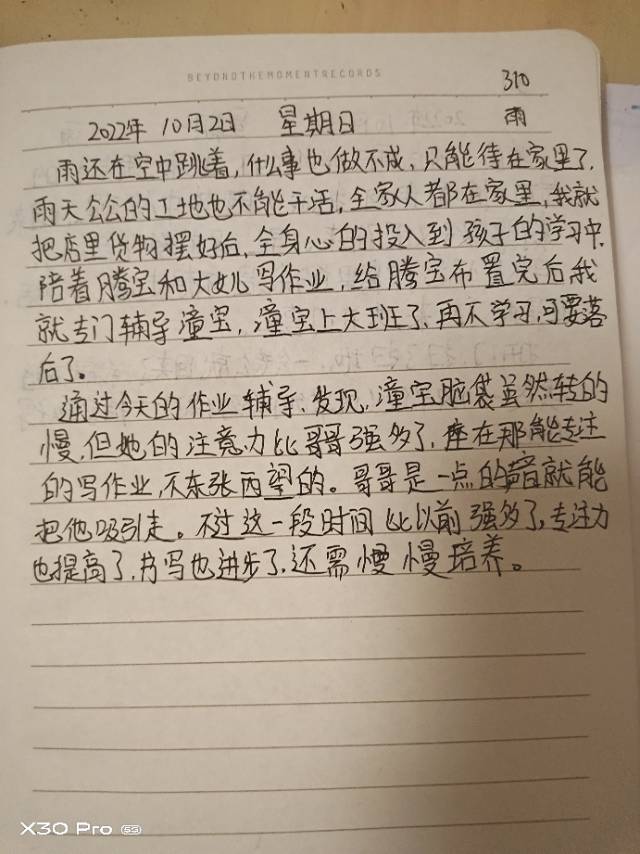 BEYONDTHEMOMENTRECORDS
310
2022年 10月2日 星期日 雨
雨还在空中跳着,什么事也做不成,只能待在家里了,
雨天公公的工地也不能干活,全家人都在家里,我就
把店里货物摆好后,全身心的投入到孩子的学习中,
陪着腾宝和大女儿写作业,给腾宝布置完后我
就专门辅导潼宝,潼宝上大班了,再不学习,可要落
后了。
通过今天的作业辅导,发现,潼宝脑袋虽然转的
慢,但她的注意力比哥哥强多了,座在那能专注
的写作业,不东张西望的。哥哥是一点的声音就能
把他吸引走。不过这一段时间比以前强多了,专注力
也提高了,书写也进步了,还需慢慢培养。
X30 Pro 5G